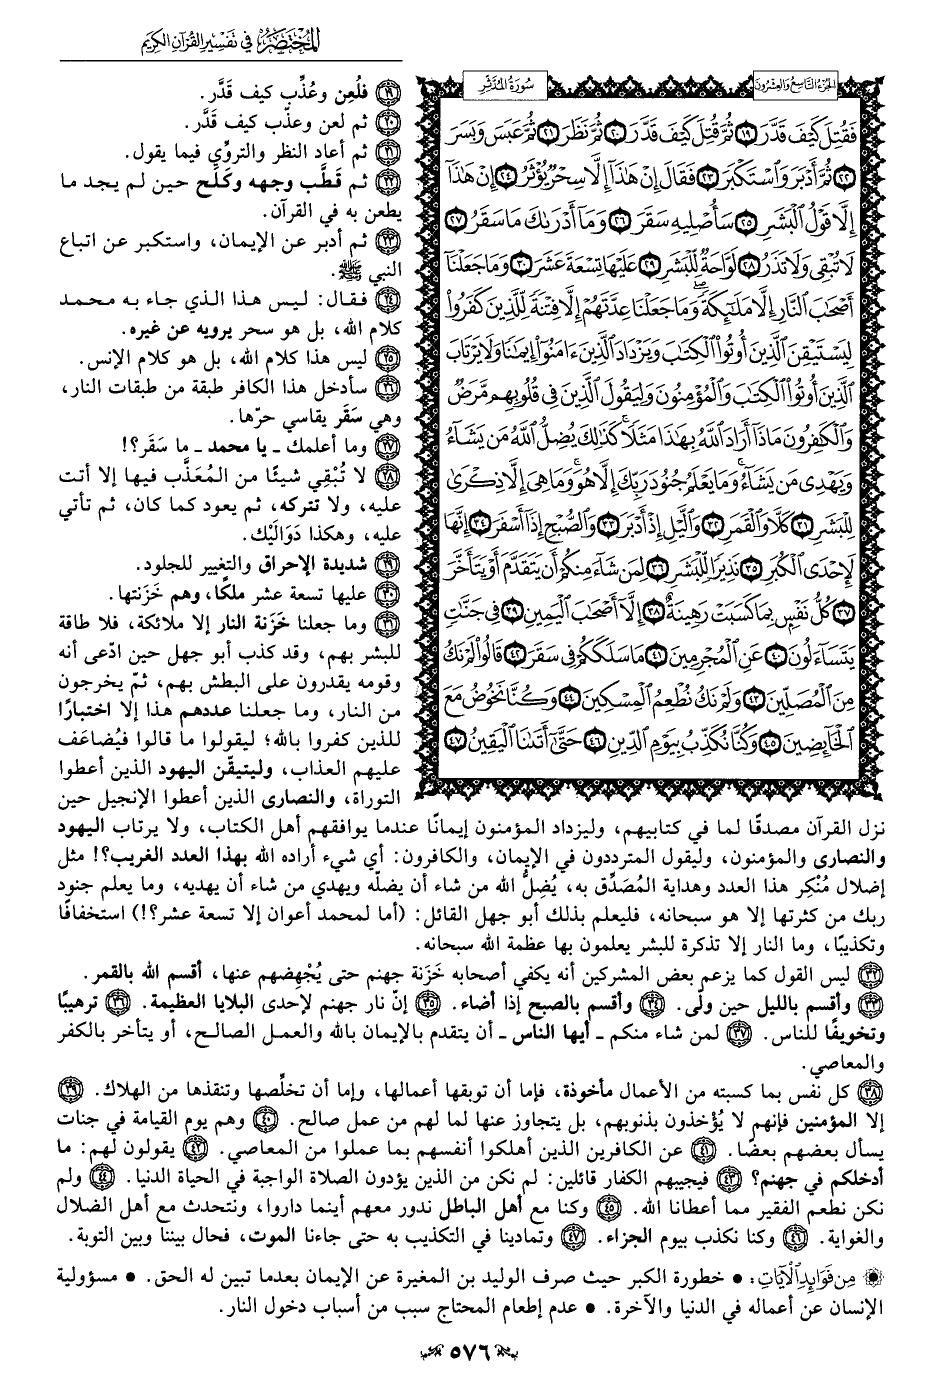 المختصر في تفسير القرآن الكريم
الجزء التاسع والعشرون
سورة المدثر
فَقُتِلَ كَيْفَ قَدَّرَ ١٩ ثُمَّ قُتِلَ كَيْفَ قَدَّرَ ٢٠ ثُمَّ نَظَرَ ٢١ ثُمَّ عَبَسَ وَبَسَرَ
٢٢ ثُمَّ أَدْبَرَ وَاسْتَكْبَرَ ٢٣ فَقَالَ إِنْ هَٰذَا إِلَّا سِحْرٌ يُؤْثَرُ ٢٤ إِنْ هَٰذَا
إِلَّا قَوْلُ الْبَشَرِ ٢٥ سَأُصْلِيهِ سَقَرَ ٢٦ وَمَا أَدْرَىٰكَ مَا سَقَرُ ٢٧
لَا تُبْقِي وَلَا تَذَرُ ٢٨ لَوَّاحَةٌ لِّلْبَشَرِ ٢٩ عَلَيْهَا تِسْعَةَ عَشَرَ ٣٠ وَمَا جَعَلْنَا
أَصْحَٰبَ النَّارِ إِلَّا مَلَٰئِكَةً وَمَا جَعَلْنَا عِدَّتَهُمْ إِلَّا فِتْنَةً لِّلَّذِينَ كَفَرُوا
لِيَسْتَيْقِنَ الَّذِينَ أُوتُوا الْكِتَٰبَ وَيَزْدَادَ الَّذِينَ ءَامَنُوا إِيمَٰنًا وَلَا يَرْتَابَ
الَّذِينَ أُوتُوا الْكِتَٰبَ وَالْمُؤْمِنُونَ وَلِيَقُولَ الَّذِينَ فِي قُلُوبِهِم مَّرَضٌ
وَالْكَٰفِرُونَ مَاذَا أَرَادَ اللَّهُ بِهَٰذَا مَثَلًا كَذَٰلِكَ يُضِلُّ اللَّهُ مَن يَشَاءُ
وَيَهْدِي مَن يَشَاءُ وَمَا يَعْلَمُ جُنُودَ رَبِّكَ إِلَّا هُوَ وَمَا هِيَ إِلَّا ذِكْرَىٰ
لِلْبَشَرِ ٣١ كَلَّا وَالْقَمَرِ ٣٢ وَالَّيْلِ إِذْ أَدْبَرَ ٣٣ وَالصُّبْحِ إِذَا أَسْفَرَ ٣٤ إِنَّهَا
لَإِحْدَى الْكُبَرِ ٣٥ نَذِيرًا لِّلْبَشَرِ ٣٦ لِمَن شَاءَ مِنكُمْ أَن يَتَقَدَّمَ أَوْ يَتَأَخَّرَ
٣٧ كُلُّ نَفْسٍ بِمَا كَسَبَتْ رَهِينَةٌ ٣٨ إِلَّا أَصْحَٰبَ الْيَمِينِ ٣٩ فِي جَنَّٰتٍ
يَتَسَاءَلُونَ ٤٠ عَنِ الْمُجْرِمِينَ ٤١ مَا سَلَكَكُمْ فِي سَقَرَ ٤٢ قَالُوا لَمْ نَكُ
مِنَ الْمُصَلِّينَ ٤٣ وَلَمْ نَكُ نُطْعِمُ الْمِسْكِينَ ٤٤ وَكُنَّا نَخُوضُ مَعَ
الْخَائِضِينَ ٤٥ وَكُنَّا نُكَذِّبُ بِيَوْمِ الدِّينِ ٤٦ حَتَّىٰ أَتَىٰنَا الْيَقِينُ ٤٧
١٩ فلُعِن وعُذِّب كيف قَدَّر.
٢٠ ثم لعن وعذّب كيف قَدَّر.
٢١ ثم أعاد النظر والتروِّي فيما يقول.
٢٢ ثم قَطَّب وجهه وكَلَح حين لم يجد ما
يطعن به في القرآن.
٢٣ ثم أدبر عن الإيمان، واستكبر عن اتباع
النبي ﷺ.
٢٤ فقال: ليس هذا الذي جاء به محمد
كلام الله، بل هو سحر يرويه عن غيره.
٢٥ ليس هذا كلام الله، بل هو كلام الإنس.
٢٦ سأدخل هذا الكافر طبقة من طبقات النار،
وهي سَقَر يقاسي حرّها.
٢٧ وما أعلمك ـ يا محمد ـ ما سَقَر؟!
٢٨ لا تُبْقِي شيئًا من المُعَذَّب فيها إلا أتت
عليه، ولا تتركه، ثم يعود كما كان، ثم تأتي
عليه، وهكذا دَوَالَيْك.
٢٩ شديدة الإحراق والتغيير للجلود.
٣٠ عليها تسعة عشر ملكًا، وهم خَزَنتها.
٣١ وما جعلنا خَزَنة النار إلا ملائكة، فلا طاقة
للبشر بهم، وقد كذب أبو جهل حين ادّعى أنه
وقومه يقدرون على البطش بهم، ثمّ يخرجون
من النار، وما جعلنا عددهم هذا إلا اختبارًا
للذين كفروا بالله؛ ليقولوا ما قالوا فيُضاعَف
عليهم العذاب، وليتيقّن اليهود الذين أعطوا
التوراة، والنصارى الذين أعطوا الإنجيل حين
نزل القرآن مصدقًا لما في كتابيهم، وليزداد المؤمنون إيمانًا عندما يوافقهم أهل الكتاب، ولا يرتاب اليهود
والنصارى والمؤمنون، وليقول المترددون في الإيمان، والكافرون: أي شيء أراده الله بهذا العدد الغريب؟! مثل
إضلال مُنْكِر هذا العدد وهداية المُصَدِّق به، يُضِلُّ الله من شاء أن يضلّه ويهدي من شاء أن يهديه، وما يعلم جنود
ربك من كثرتها إلا هو سبحانه، فليعلم بذلك أبو جهل القائل: (أما لمحمد أعوان إلا تسعة عشر؟!) استخفافًا
وتكذيبًا، وما النار إلا تذكرة للبشر يعلمون بها عظمة الله سبحانه.
٣٢ ليس القول كما يزعم بعض المشركين أنه يكفي أصحابه خَزَنة جهنم حتى يُجْهِضهم عنها، أقسم الله بالقمر.
٣٣ وأقسم بالليل حين ولّى. ٣٤ وأقسم بالصبح إذا أضاء. ٣٥ إنّ نار جهنم لإحدى البلايا العظيمة. ٣٦ ترهيبًا
وتخويفًا للناس. ٣٧ لمن شاء منكم ـ أيها الناس ـ أن يتقدم بالإيمان بالله والعمل الصالح، أو يتأخر بالكفر
والمعاصي.
٣٨ كل نفس بما كسبته من الأعمال مأخوذة، فإما أن توبقها أعمالها، وإما أن تخلِّصها وتنقذها من الهلاك. ٣٩
إلا المؤمنين فإنهم لا يُؤْخذون بذنوبهم، بل يتجاوز عنها لما لهم من عمل صالح. ٤٠ وهم يوم القيامة في جنات
يسأل بعضهم بعضًا. ٤١ عن الكافرين الذين أهلكوا أنفسهم بما عملوا من المعاصي. ٤٢ يقولون لهم: ما
أدخلكم في جهنم؟ ٤٣ فيجيبهم الكفار قائلين: لم نكن من الذين يؤدون الصلاة الواجبة في الحياة الدنيا. ٤٤ ولم
نكن نطعم الفقير مما أعطانا الله. ٤٥ وكنا مع أهل الباطل ندور معهم أينما داروا، ونتحدث مع أهل الضلال
والغواية. ٤٦ وكنا نكذب بيوم الجزاء. ٤٧ وتمادينا في التكذيب به حتى جاءنا الموت، فحال بيننا وبين التوبة.
من فوائد الآيات: • خطورة الكبر حيث صرف الوليد بن المغيرة عن الإيمان بعدما تبين له الحق. • مسؤولية
الإنسان عن أعماله في الدنيا والآخرة. • عدم إطعام المحتاج سبب من أسباب دخول النار.
٥٧٦